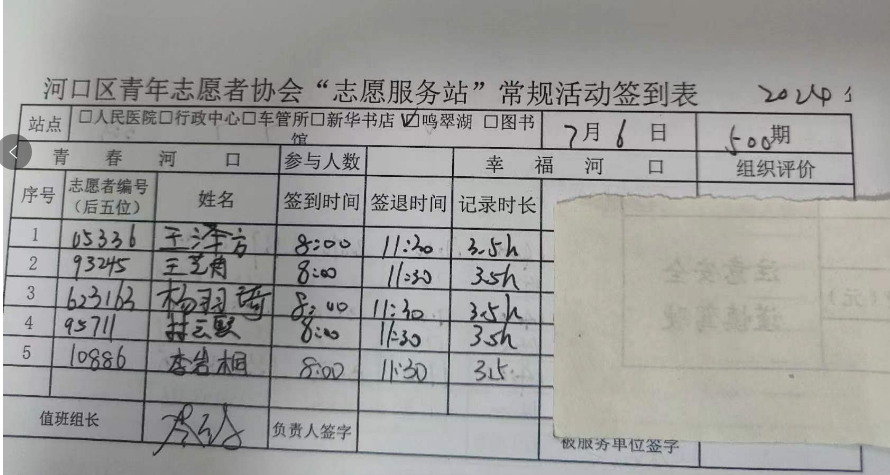 河口区青年志愿者协会“志愿服务站”常规活动签到表 2024
站点 □人民医院□行政中心□车管所□新华书店☑鸣翠湖 □图书馆 7月6日 500期
青春河口 参与人数 幸福河口 组织评价
序号 志愿者编号（后五位） 姓名 签到时间 签退时间 记录时长
1 05336 王泽方 8:00 11:30 3.5h
2 93245 王芝角 8:00 11:30 3.5h
3 623163 杨羽琦 8:00 11:30 3.5h
4 95711 8:00 11:30 3.5h
5 10886 李岩桐 8:00 11:30 3.5
值班组长 负责人签字 被服务单位签字